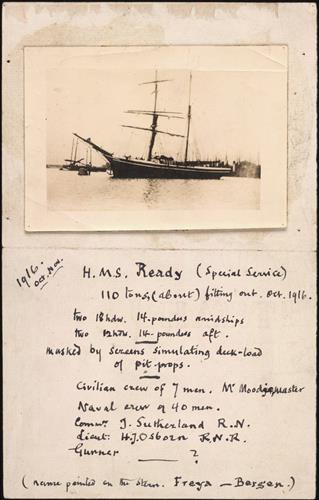 1916.
Oct. Nov.
H.M.S. Ready (Special Service)
110 tons (about) fitting out. Oct. 1916.
two 18 hdw. 14-pounders amidships
two 12 hdw. 14-pounders aft.
masked by screens simulating deck-load
of pit-props.
Civilian crew of 7 men. Mr Moody master
Naval crew of 40 men.
Commr. J. Sutherland R.N.
Lieut. H.J. Osborn R.N.R.
Gunner ?
(name painted on the stern. Freya — Bergen.)